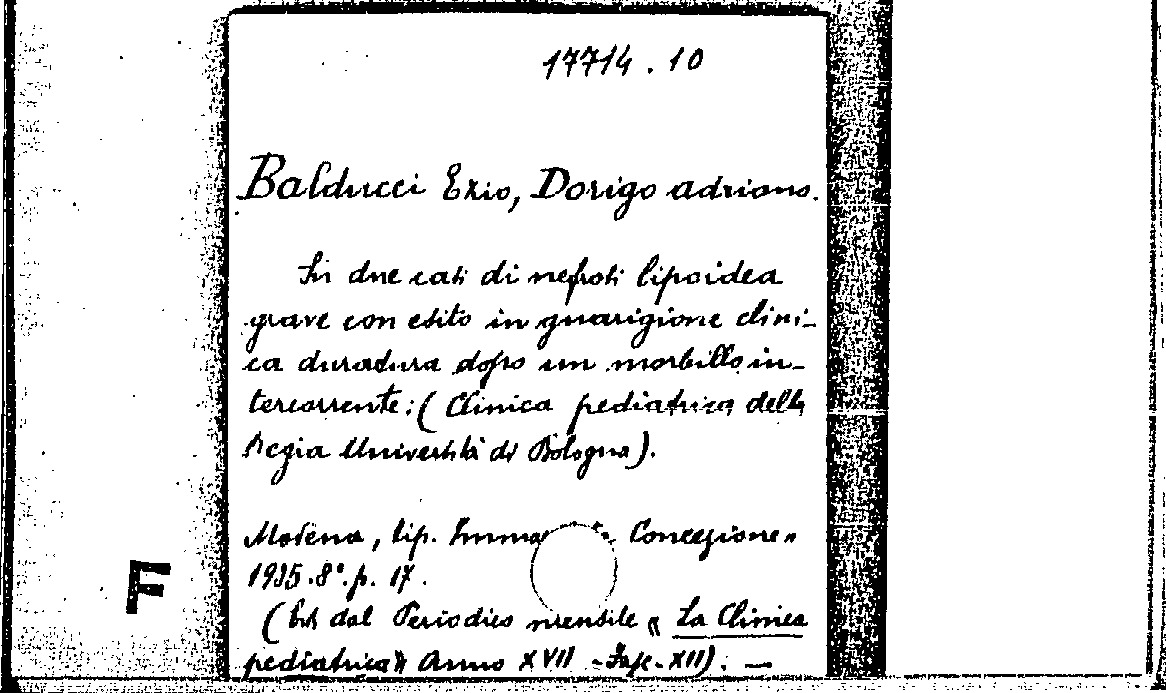 17714.10
Balducci Ezio, Dorigo Adriano.
In due casi di nefrosi lipoidea
grave con esito in guarigione clini-
ca duratura dopo un morbillo in-
tercorrente: (Clinica pediatrica della
Regia Università di Bologna).
Modena, tip. Concezione"
1935. 8°. p. 17.
(Est. dal Periodico mensile "La Clinica
pediatrica" Anno XVII - Fasc. XII). —
F